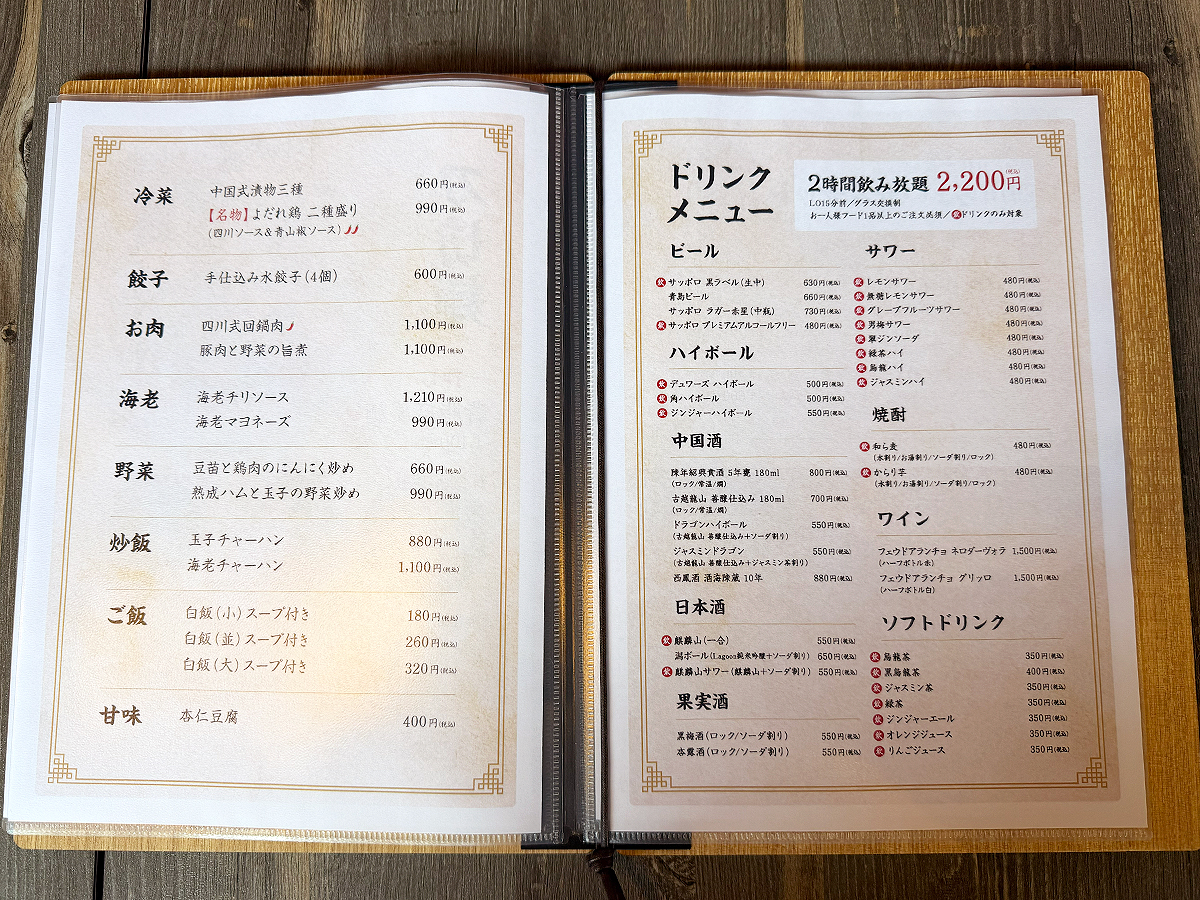 冷菜
中国式漬物三種 660円(税込)
【名物】よだれ鶏 二種盛り 990円(税込)
(四川ソース&青山椒ソース)
餃子
手仕込み水餃子(4個) 600円(税込)
お肉
四川式回鍋肉 1,100円(税込)
豚肉と野菜の旨煮 1,100円(税込)
海老
海老チリソース 1,210円(税込)
海老マヨネーズ 990円(税込)
野菜
豆苗と鶏肉のにんにく炒め 660円(税込)
熟成ハムと玉子の野菜炒め 990円(税込)
炒飯
玉子チャーハン 880円(税込)
海老チャーハン 1,100円(税込)
ご飯
白飯(小)スープ付き 180円(税込)
白飯(並)スープ付き 260円(税込)
白飯(大)スープ付き 320円(税込)
甘味
杏仁豆腐 400円(税込)
ドリンク
メニュー
2時間飲み放題 2,200円(税込)
LO15分前/グラス交換制
お一人様フード1品以上のご注文必須/飲ドリンクのみ対象
ビール
飲 サッポロ 黒ラベル(生中) 630円(税込)
青島ビール 660円(税込)
サッポロ ラガー赤星(中瓶) 730円(税込)
飲 サッポロ プレミアムアルコールフリー 480円(税込)
ハイボール
飲 デュワーズ ハイボール 500円(税込)
飲 角ハイボール 500円(税込)
飲 ジンジャーハイボール 550円(税込)
中国酒
陳年紹興貴酒 5年甕 180ml 800円(税込)
(ロック/常温/燗)
古越龍山 善醸仕込み 180ml 700円(税込)
(ロック/常温/燗)
ドラゴンハイボール 550円(税込)
(古越龍山 善醸仕込み+ソーダ割り)
ジャスミンドラゴン 550円(税込)
(古越龍山 善醸仕込み+ジャスミン茶割り)
西鳳酒 酒海陳蔵 10年 880円(税込)
日本酒
飲 麒麟山(一合) 550円(税込)
潟ボール(Lagoon純米吟醸+ソーダ割り) 650円(税込)
飲 麒麟山サワー(麒麟山+ソーダ割り) 550円(税込)
果実酒
黒梅酒(ロック/ソーダ割り) 550円(税込)
杏露酒(ロック/ソーダ割り) 550円(税込)
サワー
飲 レモンサワー 480円(税込)
飲 無糖レモンサワー 480円(税込)
飲 グレープフルーツサワー 480円(税込)
飲 男梅サワー 480円(税込)
飲 翠ジンソーダ 480円(税込)
飲 緑茶ハイ 480円(税込)
飲 烏龍ハイ 480円(税込)
飲 ジャスミンハイ 480円(税込)
焼酎
飲 和ら麦 480円(税込)
(水割り/お湯割り/ソーダ割り/ロック)
飲 からり芋 480円(税込)
(水割り/お湯割り/ソーダ割り/ロック)
ワイン
フェウドアランチョ ネロダーヴォラ 1,500円(税込)
(ハーフボトル赤)
フェウドアランチョ グリッロ 1,500円(税込)
(ハーフボトル白)
ソフトドリンク
飲 烏龍茶 350円(税込)
飲 黒烏龍茶 400円(税込)
飲 ジャスミン茶 350円(税込)
飲 緑茶 350円(税込)
飲 ジンジャーエール 350円(税込)
飲 オレンジジュース 350円(税込)
飲 りんごジュース 350円(税込)